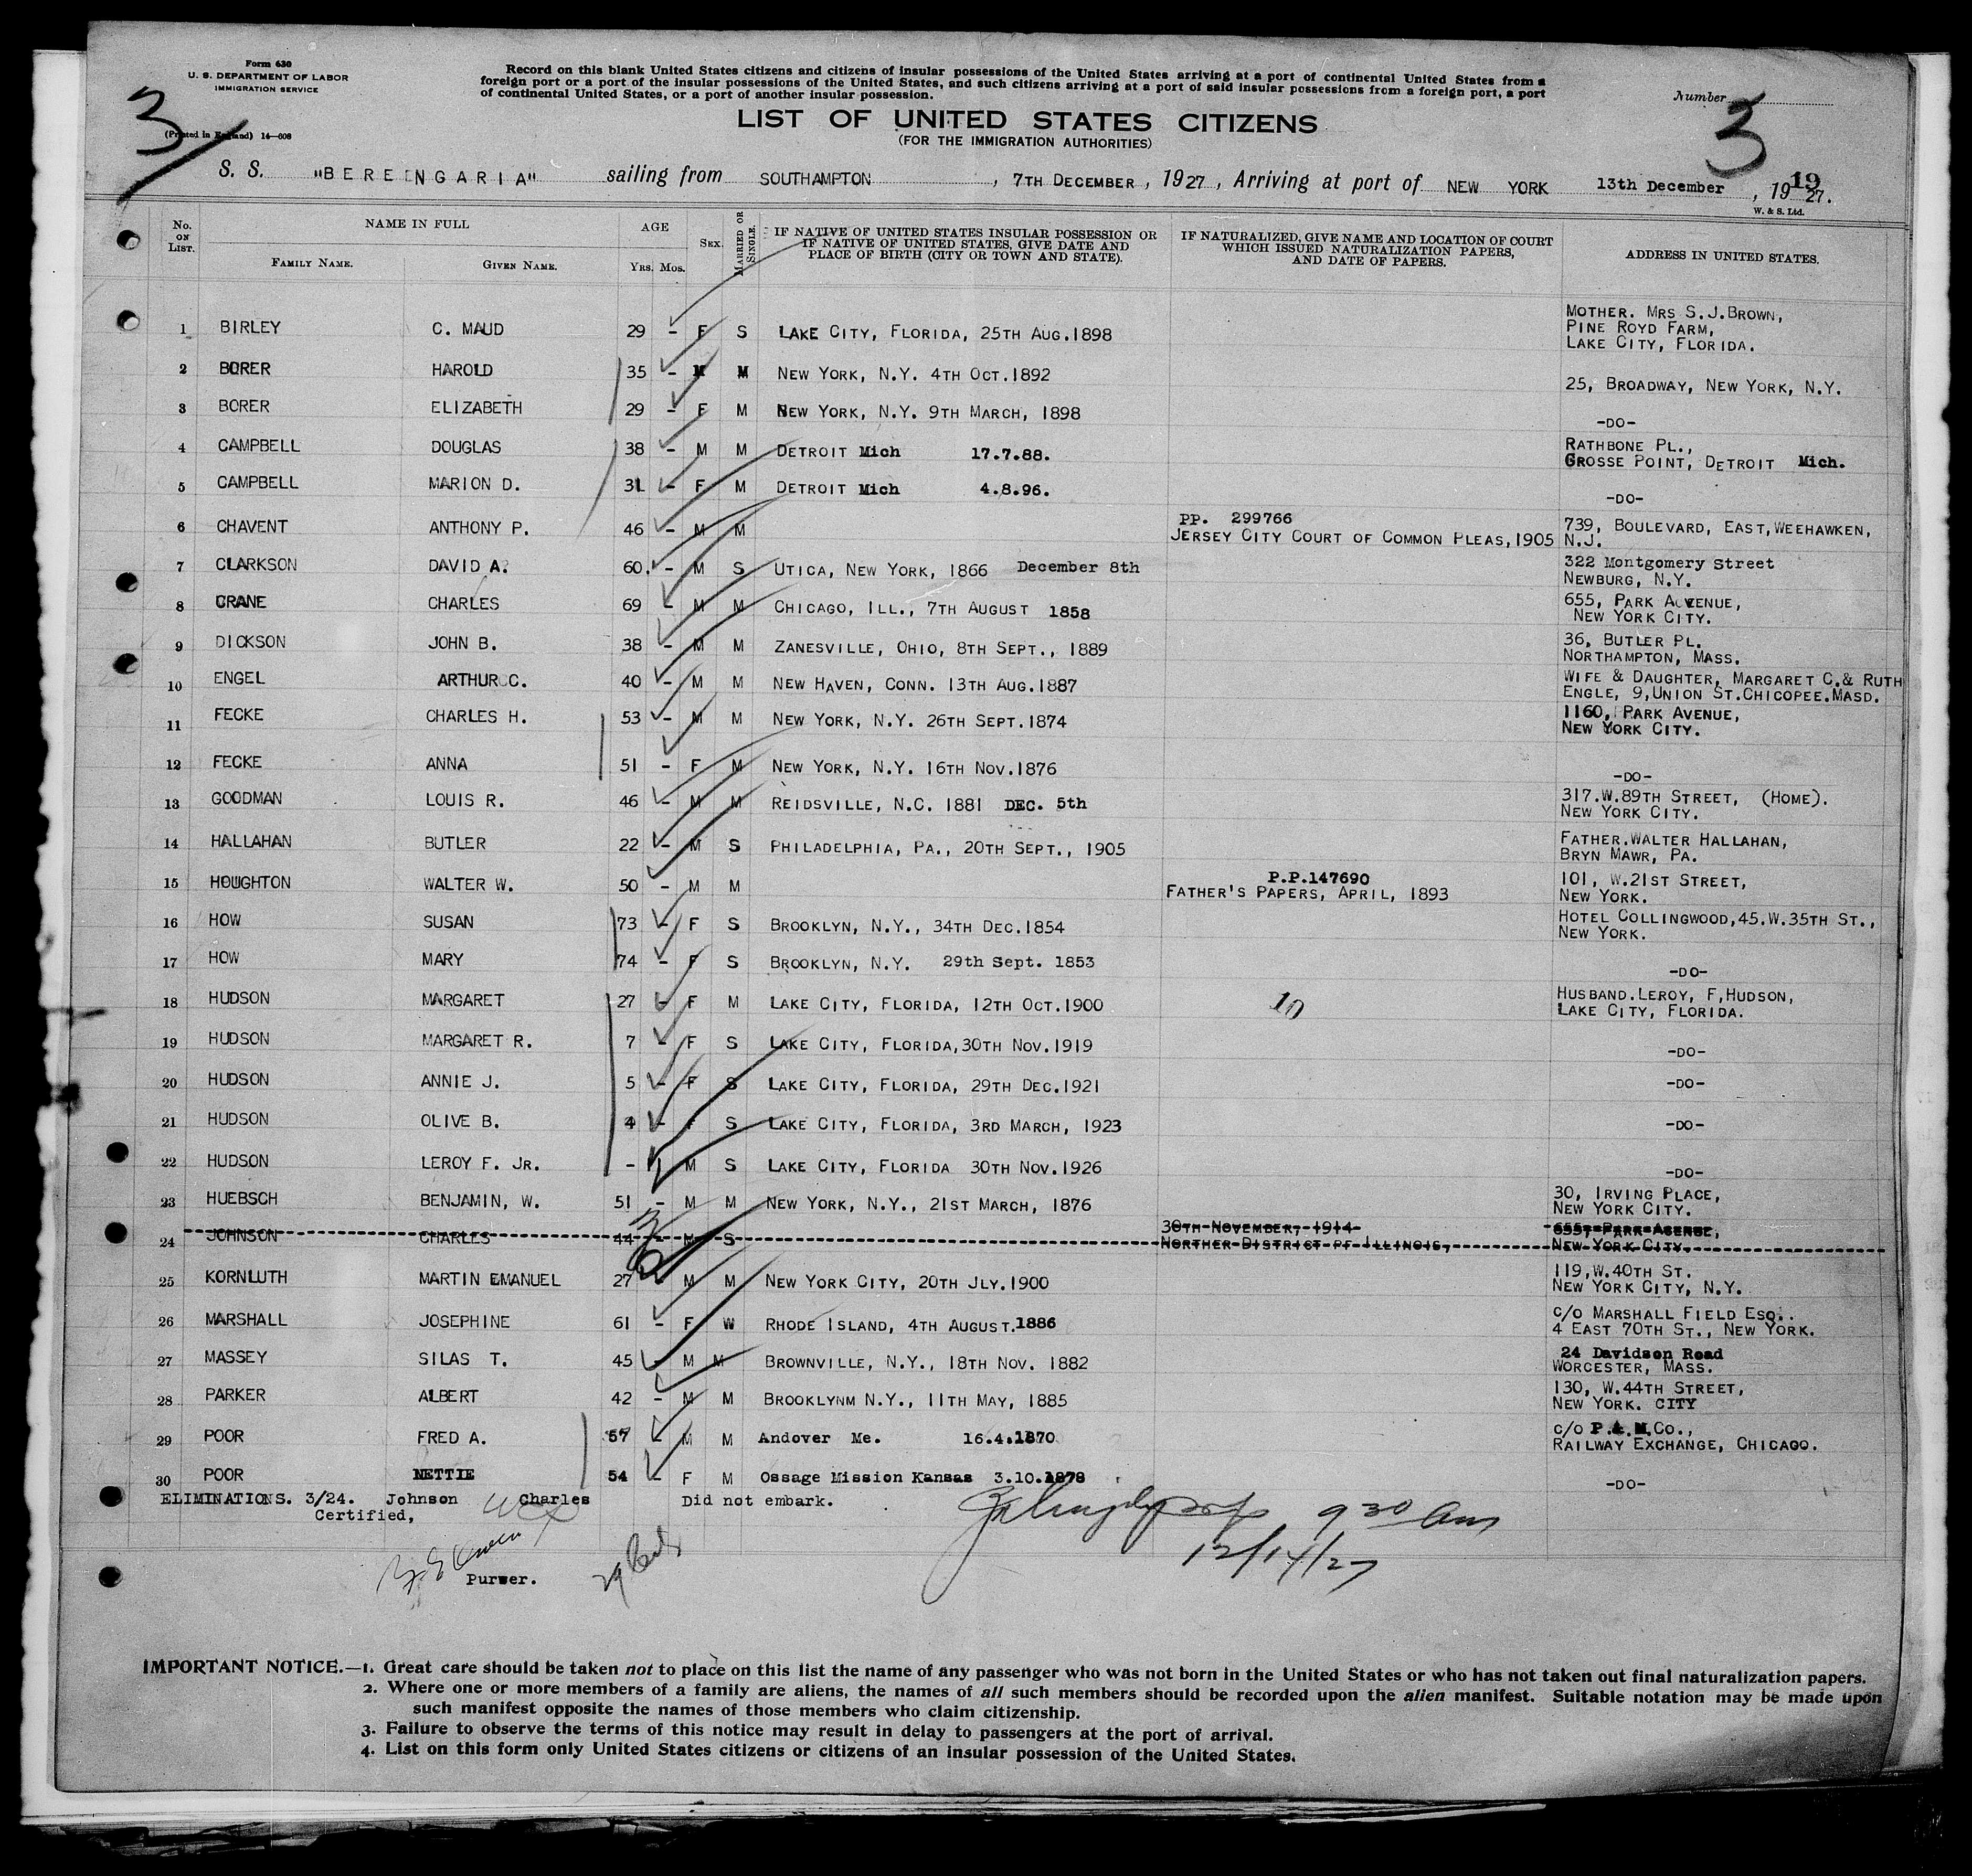 Form 630
U. S. DEPARTMENT OF LABOR
IMMIGRATION SERVICE
(Printed in England) 14—608
3
Record on this blank United States citizens and citizens of insular possessions of the United States arriving at a port of continental United States from a
foreign port or a port of the insular possessions of the United States, and such citizens arriving at a port of said insular possessions from a foreign port, a port
of continental United States, or a port of another insular possession.
Number
3
LIST OF UNITED STATES CITIZENS
(FOR THE IMMIGRATION AUTHORITIES)
S. S. "BERENGARIA" sailing from SOUTHAMPTON, 7TH DECEMBER, 1927, Arriving at port of NEW YORK 13th December, 1927.
19
W. & S. Ltd.
No. ON LIST. NAME IN FULL AGE SEX. MARRIED OR SINGLE. IF NATIVE OF UNITED STATES INSULAR POSSESSION OR IF NATIVE OF UNITED STATES, GIVE DATE AND PLACE OF BIRTH (CITY OR TOWN AND STATE). IF NATURALIZED, GIVE NAME AND LOCATION OF COURT WHICH ISSUED NATURALIZATION PAPERS, AND DATE OF PAPERS. ADDRESS IN UNITED STATES.
FAMILY NAME. GIVEN NAME. YRS. MOS.
1 BIRLEY C. MAUD 29 - F S LAKE CITY, FLORIDA, 25TH AUG.1898 MOTHER. MRS S.J.BROWN, PINE ROYD FARM, LAKE CITY, FLORIDA.
2 BORER HAROLD 35 - M M NEW YORK, N.Y. 4TH OCT.1892 25, BROADWAY, NEW YORK, N.Y.
3 BORER ELIZABETH 29 - F M NEW YORK, N.Y. 9TH MARCH, 1898 -DO-
4 CAMPBELL DOUGLAS 38 - M M DETROIT Mich 17.7.88. RATHBONE PL., GROSSE POINT, DETROIT Mich.
5 CAMPBELL MARION D. 31 - F M DETROIT Mich 4.8.96. -DO-
6 CHAVENT ANTHONY P. 46 - M M PP. 299766 JERSEY CITY COURT OF COMMON PLEAS,1905 739, BOULEVARD, EAST,WEEHAWKEN, N.J.
7 CLARKSON DAVID A. 60. - M S UTICA, NEW YORK, 1866 December 8th 322 Montgomery Street NEWBURG, N.Y.
8 CRANE CHARLES 69 - M M CHICAGO, ILL., 7TH AUGUST 1858 655, PARK AVENUE, NEW YORK CITY.
9 DICKSON JOHN B. 38 - M M ZANESVILLE, OHIO, 8TH SEPT., 1889 36, BUTLER PL. NORTHAMPTON, MASS.
10 ENGEL ARTHUR C. 40 - M M NEW HAVEN, CONN. 13TH AUG.1887 WIFE & DAUGHTER, MARGARET C.& RUTH ENGLE, 9,UNION ST.CHICOPEE.MASD.
11 FECKE CHARLES H. 53 - M M NEW YORK, N.Y. 26TH SEPT.1874 1160, PARK AVENUE, NEW YORK CITY.
12 FECKE ANNA 51 - F M NEW YORK, N.Y. 16TH NOV.1876 -DO-
13 GOODMAN LOUIS R. 46 - M M REIDSVILLE, N.C. 1881 DEC. 5th 317.W.89TH STREET, (HOME). NEW YORK CITY.
14 HALLAHAN BUTLER 22 - M S PHILADELPHIA, PA., 20TH SEPT., 1905 FATHER.WALTER HALLAHAN, BRYN MAWR, PA.
15 HOUGHTON WALTER W. 50 - M M P.P.147690 FATHER'S PAPERS, APRIL, 1893 101, W.21ST STREET, NEW YORK.
16 HOW SUSAN 73 - F S BROOKLYN, N.Y., 34TH DEC.1854 HOTEL COLLINGWOOD,45.W.35TH ST., NEW YORK.
17 HOW MARY 74 - F S BROOKLYN, N.Y. 29th Sept. 1853 -DO-
18 HUDSON MARGARET 27 - F M LAKE CITY, FLORIDA, 12TH OCT.1900 10 HUSBAND.LEROY, F,HUDSON, LAKE CITY, FLORIDA.
19 HUDSON MARGARET R. 7 - F S LAKE CITY, FLORIDA,30TH NOV.1919 -DO-
20 HUDSON ANNIE J. 5 - F S LAKE CITY, FLORIDA, 29TH DEC.1921 -DO-
21 HUDSON OLIVE B. 4 - F S LAKE CITY, FLORIDA, 3RD MARCH, 1923 -DO-
22 HUDSON LEROY F. JR. - 1 M S LAKE CITY, FLORIDA 30TH NOV.1926 -DO-
23 HUEBSCH BENJAMIN, W. 51 - M M NEW YORK, N.Y., 21ST MARCH, 1876 30, IRVING PLACE, NEW YORK CITY.
24 JOHNSON CHARLES 44 - M S 30TH NOVEMBER, 1914 NORTHER DISTRICT PF ILLINOIS, 655, PARK AGENUE, NEW YORK CITY.
25 KORNLUTH MARTIN EMANUEL 27 - M M NEW YORK CITY, 20TH JLY.1900 119,W.40TH ST. NEW YORK CITY, N.Y.
26 MARSHALL JOSEPHINE 61 - F W RHODE ISLAND, 4TH AUGUST.1886 C/O MARSHALL FIELD ESQ. 4 EAST 70TH ST., NEW YORK.
27 MASSEY SILAS T. 45 - M M BROWNVILLE, N.Y., 18TH NOV. 1882 24 Davidson Road WORCESTER, MASS.
28 PARKER ALBERT 42 - M M BROOKLYNM N.Y., 11TH MAY, 1885 130, W.44TH STREET, NEW YORK. CITY
29 POOR FRED A. 57 - M M Andover Me. 16.4.1870 C/O P.& M.Co., RAILWAY EXCHANGE, CHICAGO.
30 POOR NETTIE 54 - F M Ossage Mission Kansas 3.10.1878 -DO-
ELIMINATIONS. 3/24. Johnson Charles Did not embark.
Certified,
9 30 am
12/14/27
Purser.
IMPORTANT NOTICE.—1. Great care should be taken not to place on this list the name of any passenger who was not born in the United States or who has not taken out final naturalization papers.
2. Where one or more members of a family are aliens, the names of all such members should be recorded upon the alien manifest. Suitable notation may be made upon
such manifest opposite the names of those members who claim citizenship.
3. Failure to observe the terms of this notice may result in delay to passengers at the port of arrival.
4. List on this form only United States citizens or citizens of an insular possession of the United States.